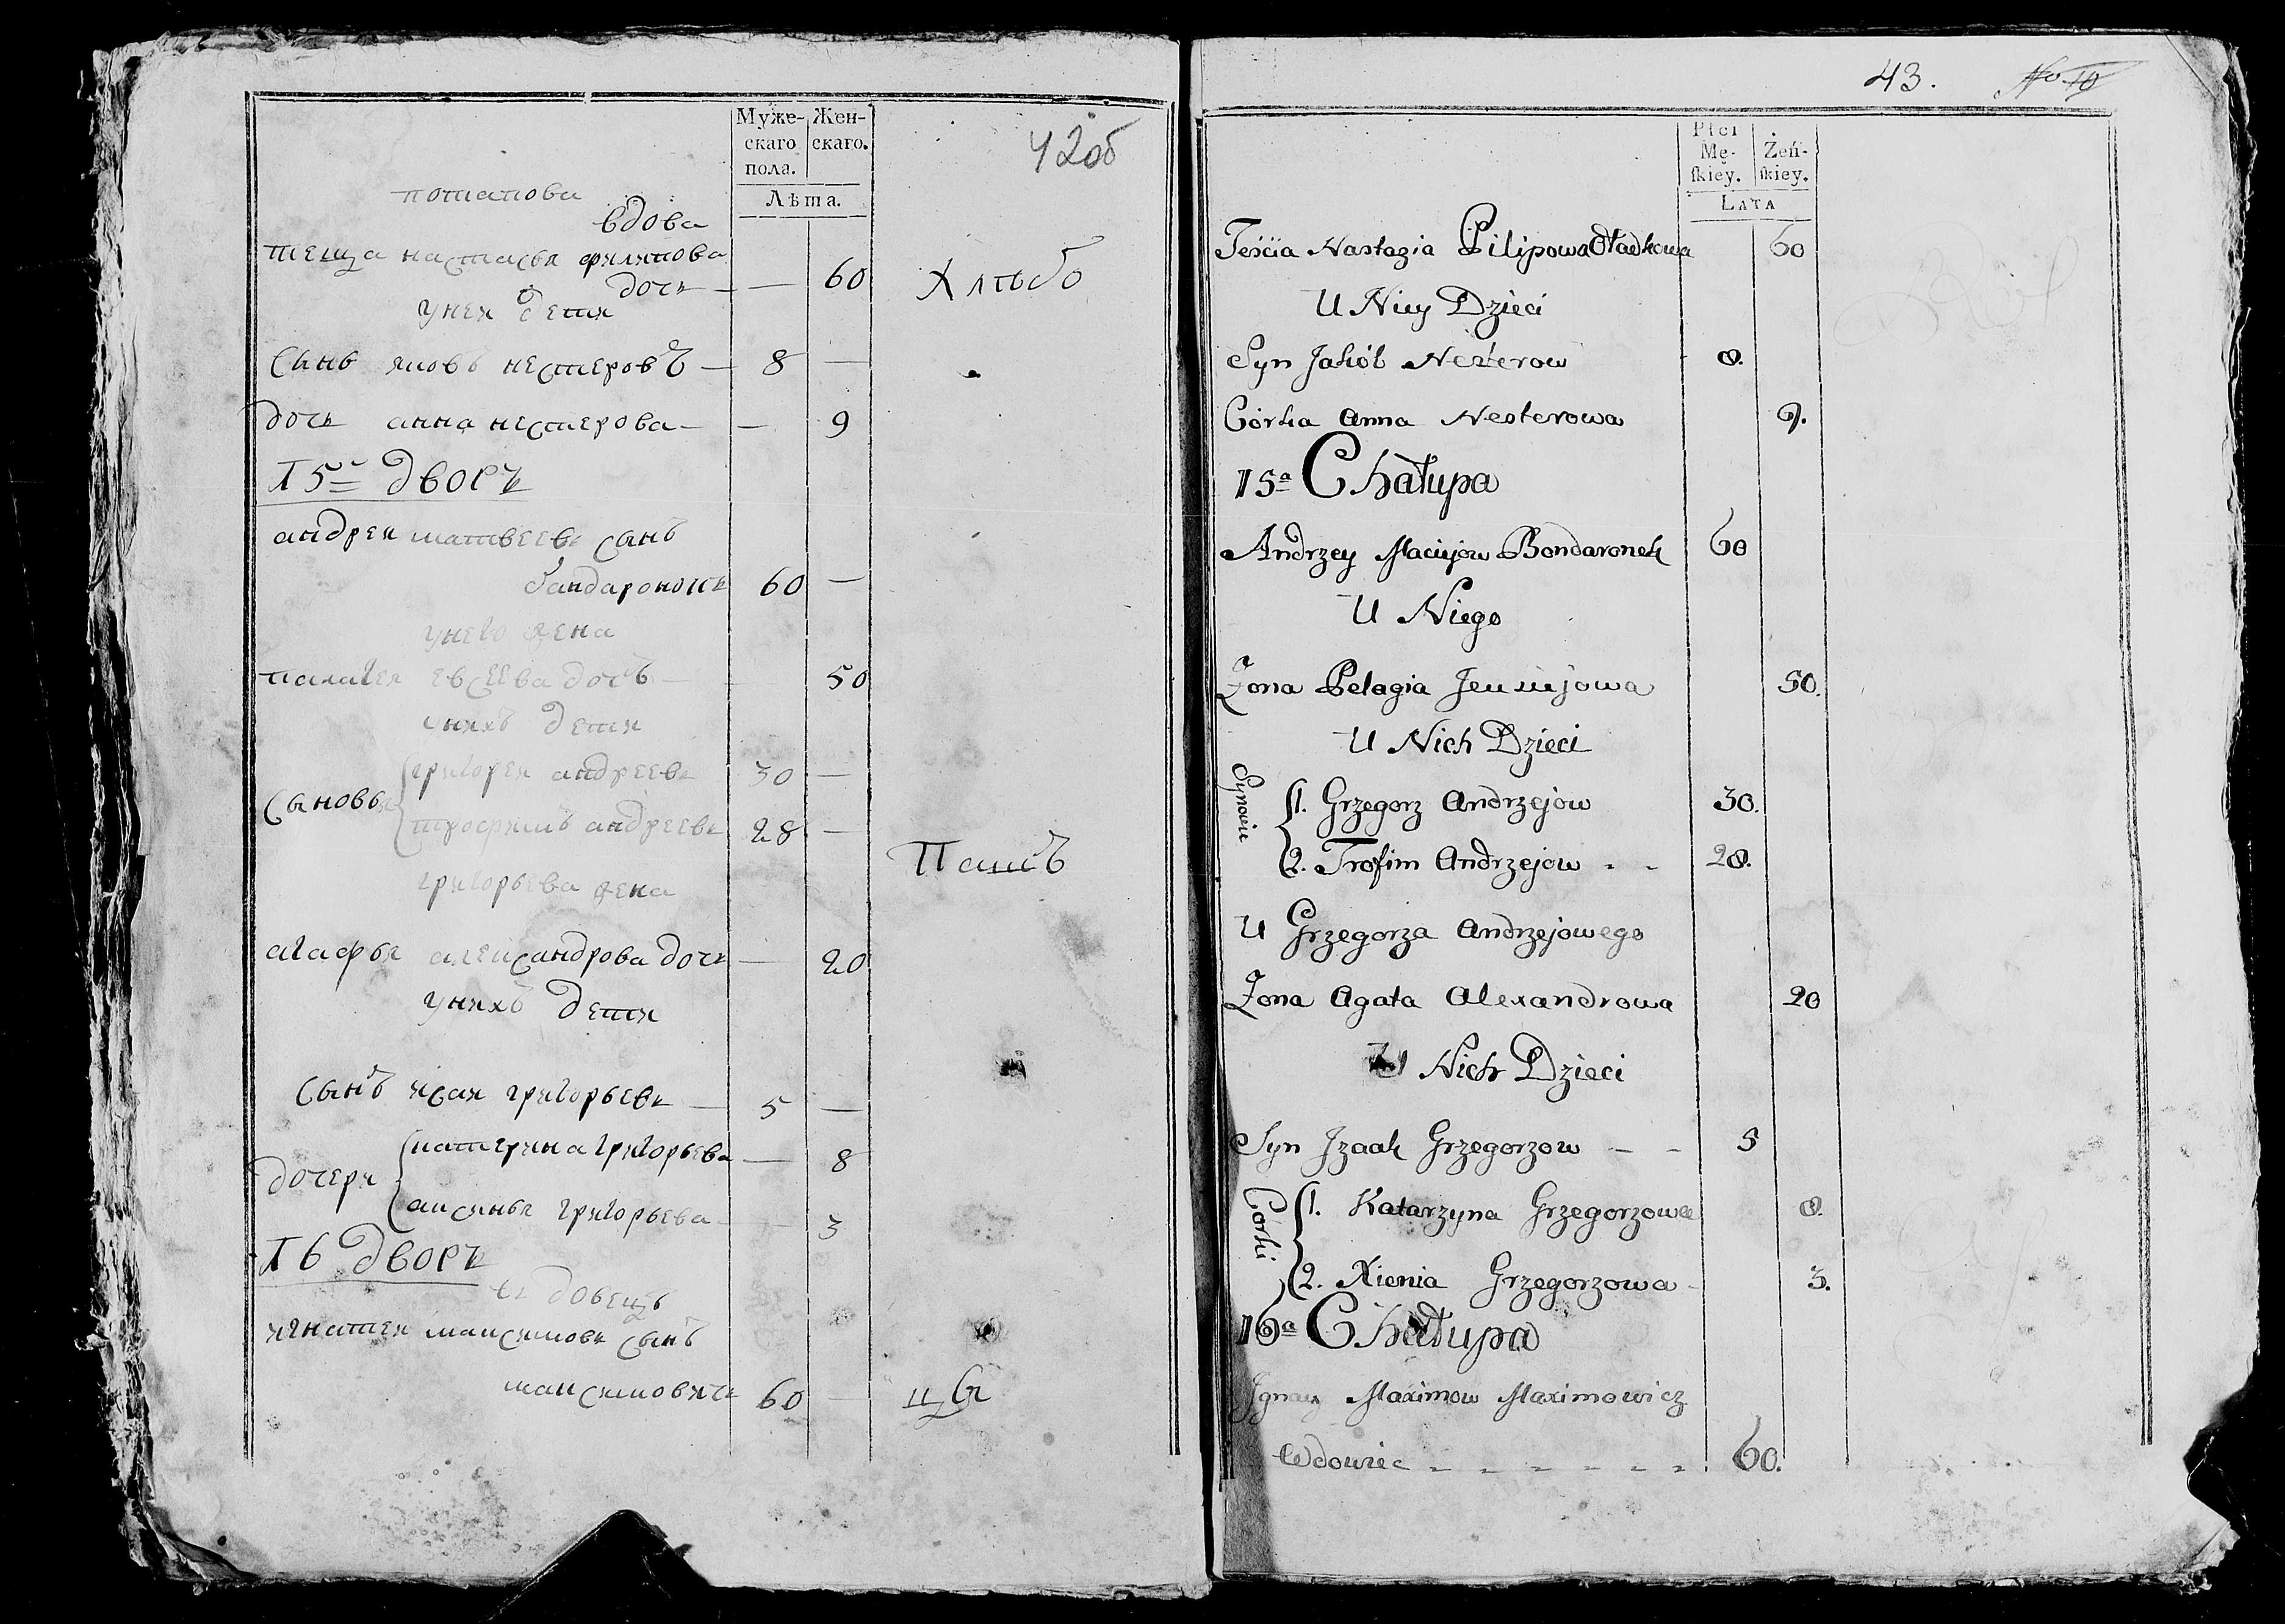 Муже-
скаго
пола.
Жен-
скаго.
Лѣта.
42об
потапова
вдова
теща настасья филипова
дочь — — 60
Хлѣбо
у нея дети
сынъ яковъ нестеровъ — 8 —
дочь анна нестерова — — 9
15й дворъ
андрей матвеевъ сынъ
бандаронокъ 60 —
у него жена
палагея евсеева дочь — — 50
у нихъ дети
сыновья
григорей андреевъ 30 —
трофимъ андреевъ 28 —
Пашъ
григорьева жена
агафья александрова дочь — 20
у нихъ дети
сынъ исай григорьевъ — 5 —
дочери
катерина григорьева — 8
аксинья григорьева — 3
16 дворъ
вдовецъ
игнатей максимовъ сынъ
максимовичъ 60 —
43. No 10
Płci
Mę-
skiey.
Żeń-
skiey.
LATA
Teścia Nastazia Pilipowa 60
U Niey Dzieci
Syn Jakób Nesterow 8.
Córka Anna Nesterowa 9.
15a Chałupa
Andrzey Maciejow Bondaronek 60
U Niego
Żona Pelagia 50.
U Nich Dzieci
Synowie
1. Grzegorz Andrzejow 30.
2. Trofim Andrzejow - - 28.
U Grzegorza Andrzejowego
Żona Agata Alexandrowa 20
U Nich Dzieci
Syn Jzaak Grzegorzow - - 5
Córki
1. Katarzyna Grzegorzowa 8.
2. Xienia Grzegorzowa 3.
16a Chałupa
Jgnacy Maximow Maximowicz
Wdowiec - - - - - - 60.